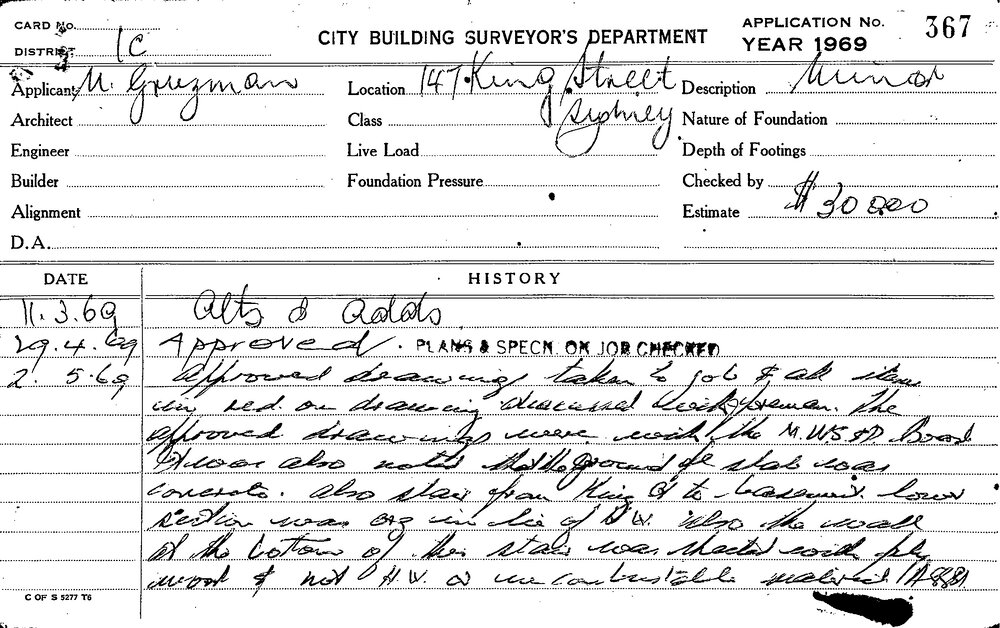 CARD No.
DISTRICT 1C
CITY BUILDING SURVEYOR'S DEPARTMENT
APPLICATION No. 367
YEAR 1969
Applicant M. Gruzman
Location 147 King Street Sydney
Description Minor
Architect
Class
Nature of Foundation
Engineer
Live Load
Depth of Footings
Builder
Foundation Pressure
Checked by
Alignment
Estimate $30000
D.A.
DATE HISTORY
11.3.69 Alts & Adds
29.4.69 Approved. PLANS & SPECN. ON JOB CHECKED
2.5.69 Approved drawings taken to job & all items
in red on drawing discussed with foreman. The
approved drawings were with the M.W.S & D Board
It was also noted that the ground fl slab was
concrete. Also stair from King St to basement lower
section was in lie of H.W. also the wall
at the bottom of this stair was sheeted with ply
wood & not H.W. or incombustible material
C OF S 5277 T6